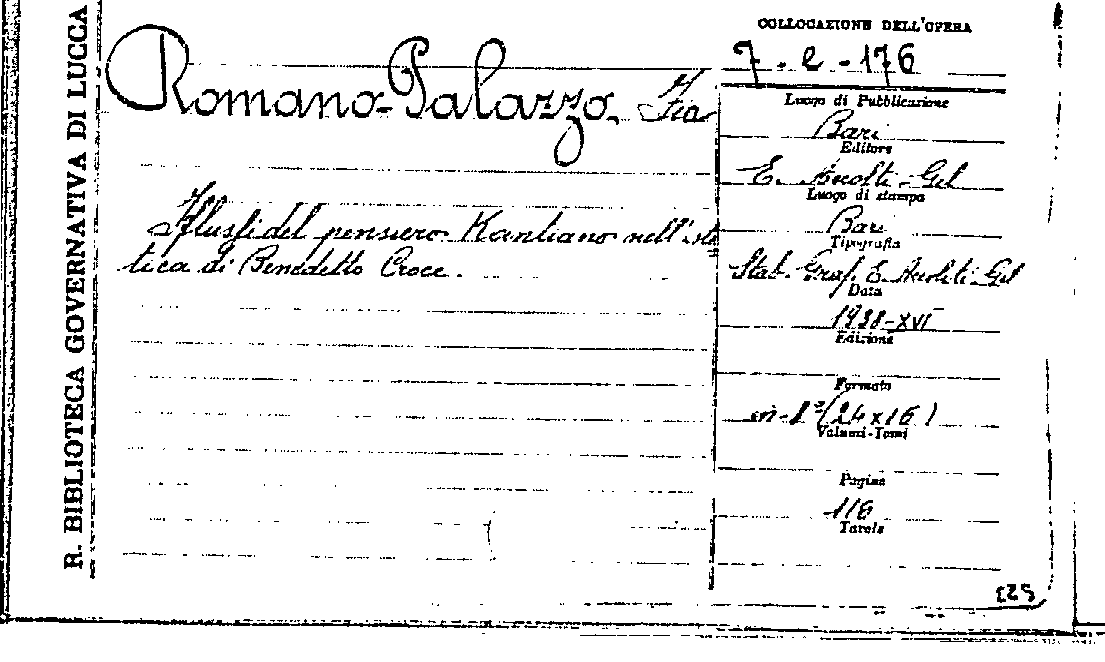 R. BIBLIOTECA GOVERNATIVA DI LUCCA
Romano-Palazzo,
Influssi del pensiero Kantiano nell'este
tica di Benedetto Croce.
COLLOCAZIONE DELL'OPERA
7.e-176
Luogo di Pubblicazione
Bari
Editore
E. Accolti-Gil
Luogo di stampa
Bari
Tipografia
Stab. Graf. E. Accolti-Gil
Data
1938-XVI
Edizione
Formato
in-8°(24x16)
Volumi-Tomi
Pagine
Tavole